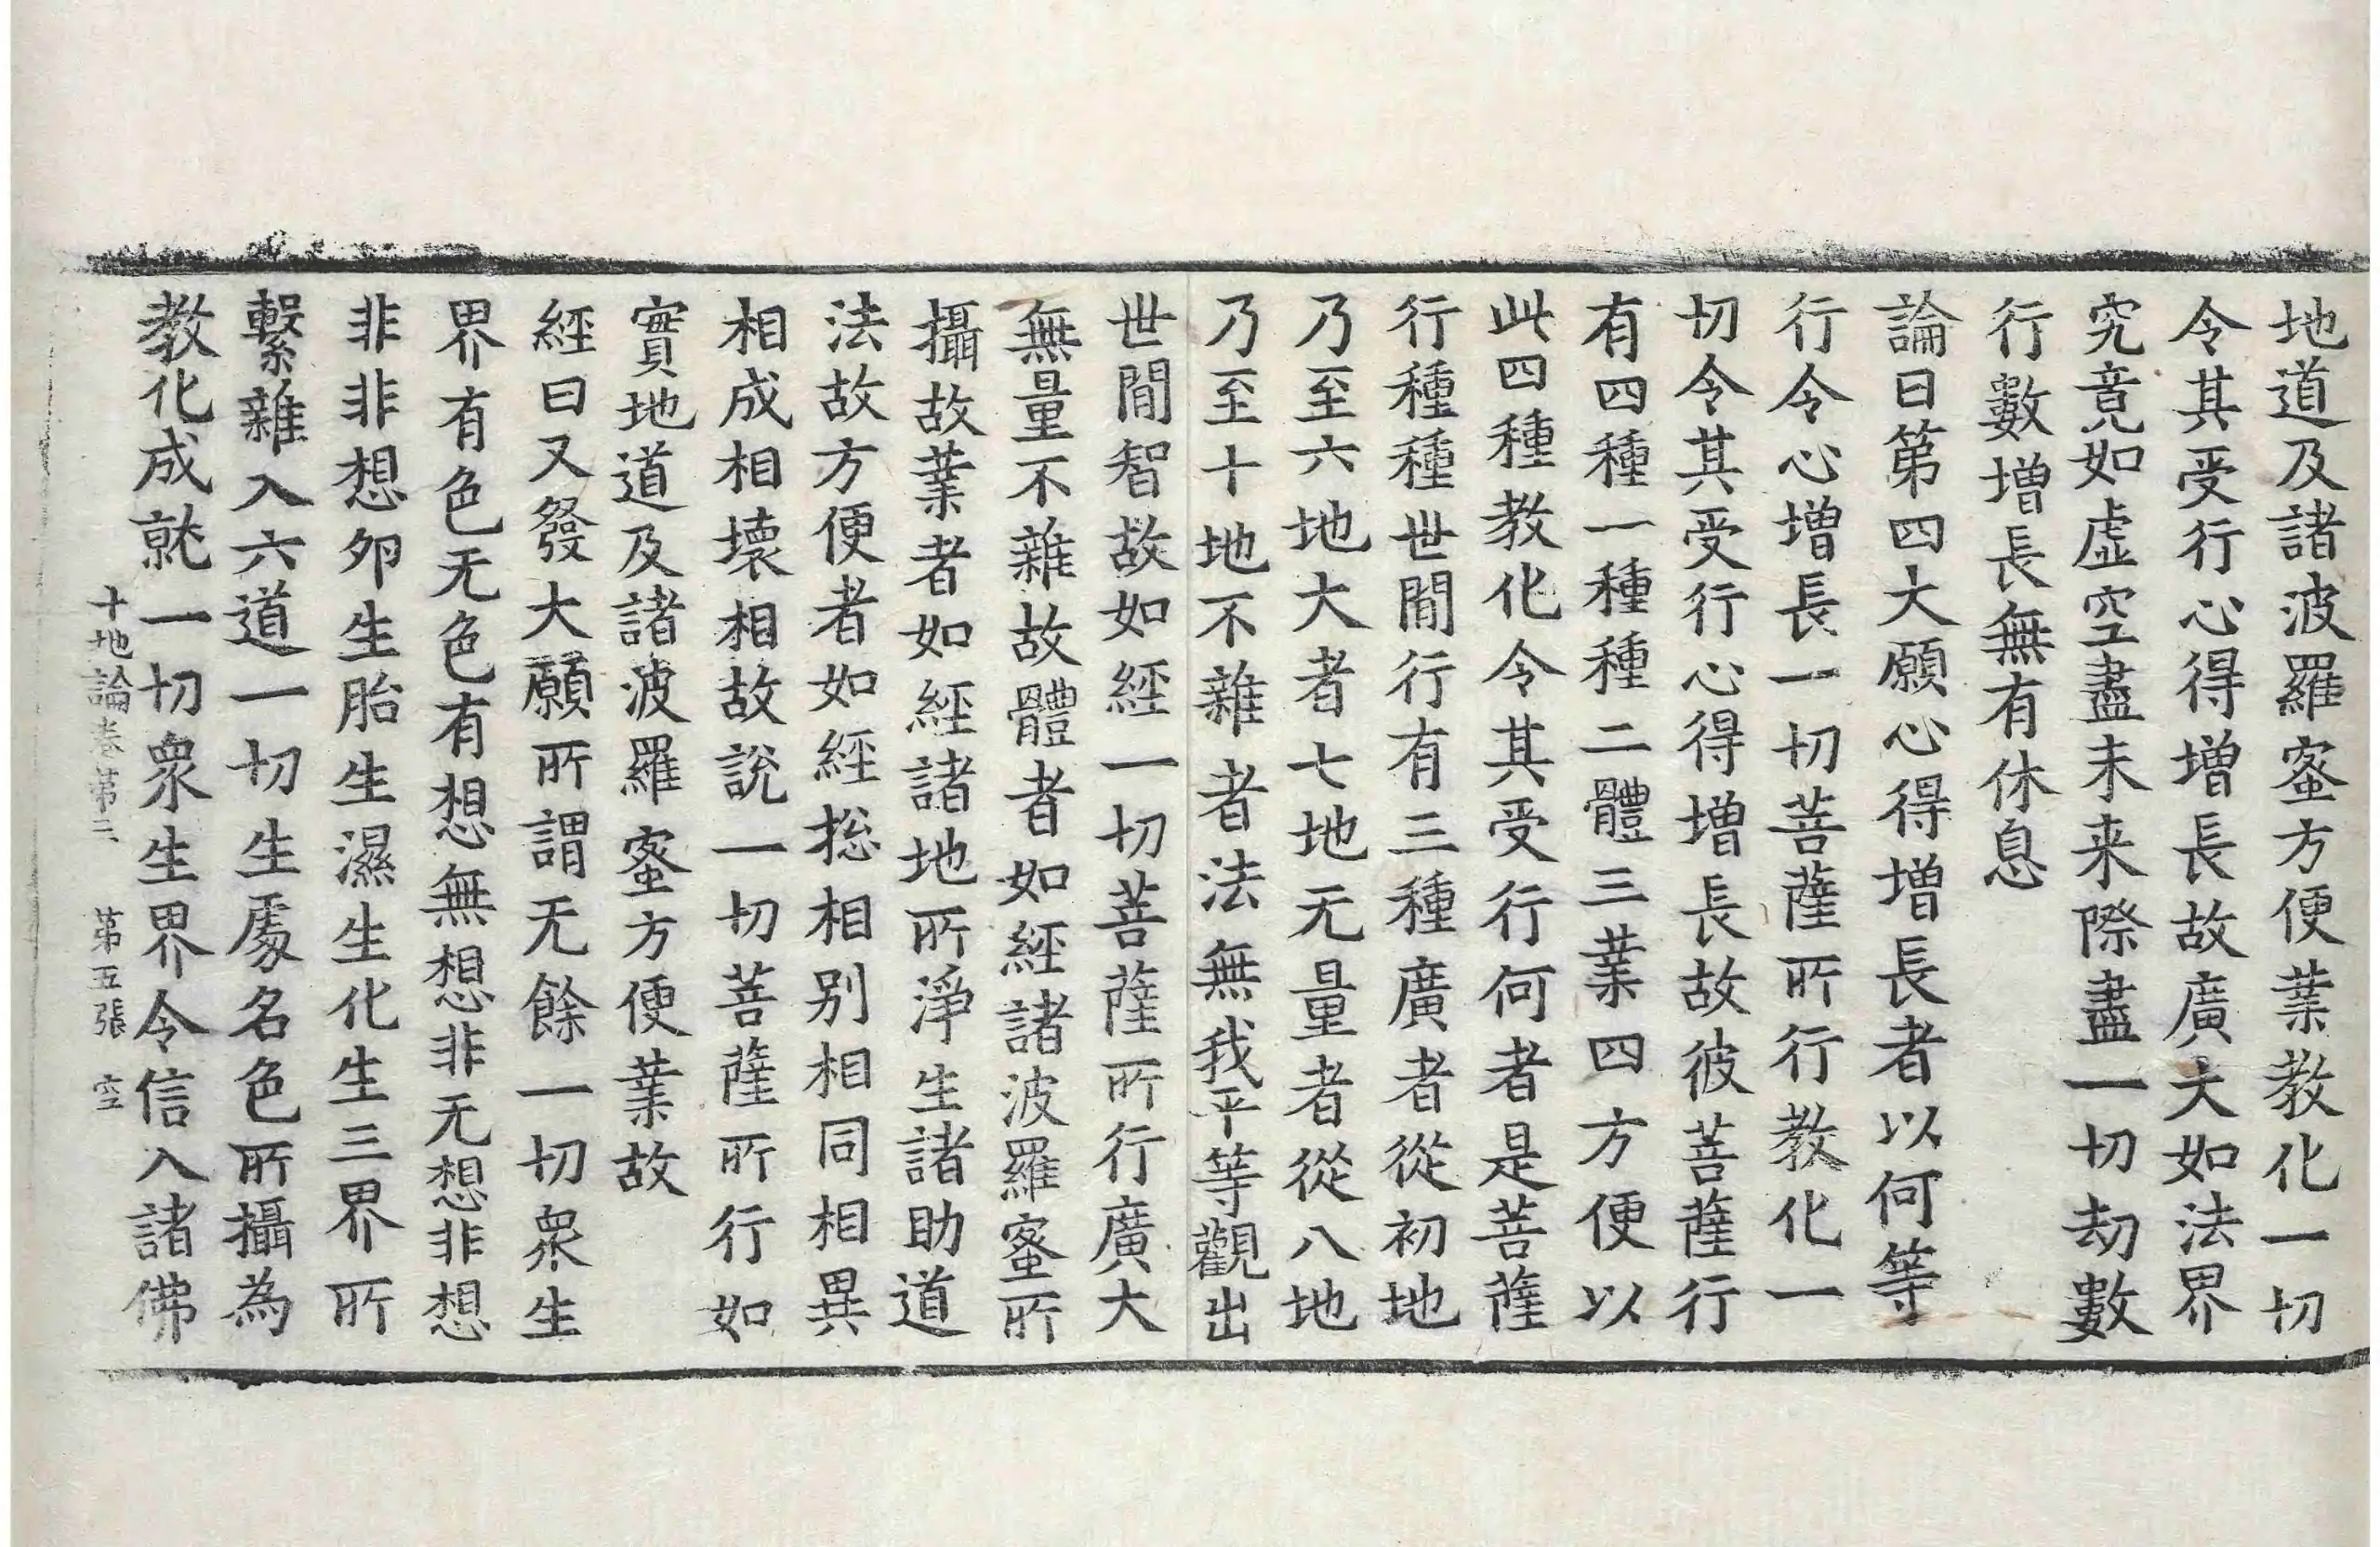 地道及諸波羅蜜方便業教化一切
令其受行心得增長故廣大如法界
究竟如虛空盡未来際盡一切劫數
行數增長無有休息
論曰第四大願心得增長者以何等
行令心增長一切菩薩所行教化一
切令其受行心得增長故彼菩薩行
有四種一種種二體三業四方便以
此四種教化令其受行何者是菩薩
行種種世間行有三種廣者從初地
乃至六地大者七地无量者從八地
乃至十地不雜者法無我平等觀出
世間智故如經一切菩薩所行廣大
無量不雜故體者如經諸波羅蜜所
攝故業者如經諸地所淨生諸助道
法故方便者如經総相別相同相異
相成相壞相故說一切菩薩所行如
實地道及諸波羅蜜方便業故
經曰又發大願所謂无餘一切衆生
界有色无色有想無想非无想非想
非非想卵生胎生濕生化生三界所
繫雜入六道一切生處名色所攝為
教化成就一切衆生界令信入諸佛
十地論卷第三 第五張 空